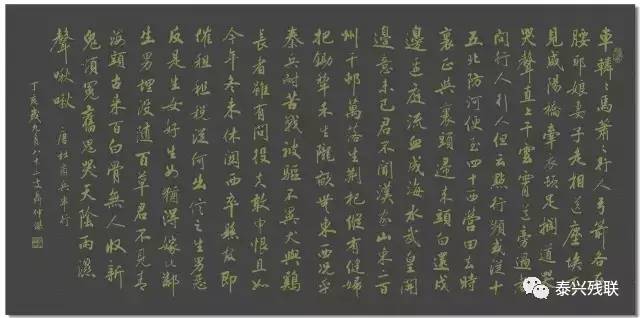 車轔〻馬蕭〻行人弓箭各在
腰耶娘妻子走相送塵埃不
見咸陽橋牽衣頓足攔道哭
哭聲直上干雲霄道旁過者
問行人行人但云點行頻或從十
五北防河便至四十西營田去時
里正與裹頭歸來頭白還戍
邊邊庭流血成海水武皇開
邊意未已君不聞漢家山東二百
州千邨萬落生荊杞縱有健婦
把鋤犁禾生隴畝無東西況乎
秦兵耐苦戰被驅不異犬與雞
長者雖有問役夫敢申恨且如
今年冬未休關西卒縣
催租租稅從何出信知生男惡
反是生女好生女猶得嫁比鄰
生男埋沒隨百草君不見青
海頭古來白骨無人收新
鬼煩冤舊鬼哭天陰雨濕
聲啾啾 唐杜甫兵車行
丁亥歲九月八十二叟
泰兴残联